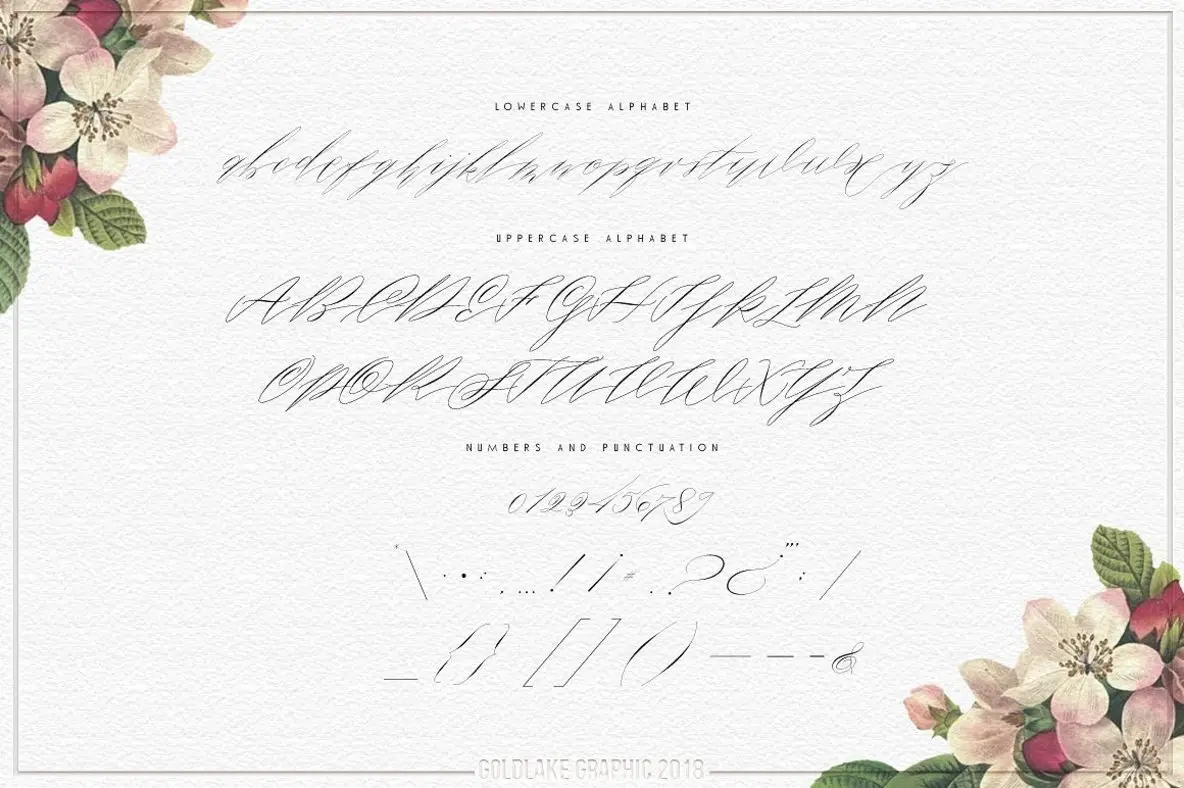 LOWERCASE ALPHABET
abcdefghijklmnopqrstuvwxyz
UPPERCASE ALPHABET
ABCDEFGHIJKLMN
OPQRSTUVWXYZ
NUMBERS AND PUNCTUATION
0123456789
* \ · • : , … ! ¡ # . . ? ¿ "' ; /
_ { } [ ] ( ) — – - &
GOLDLAKE GRAPHIC 2018